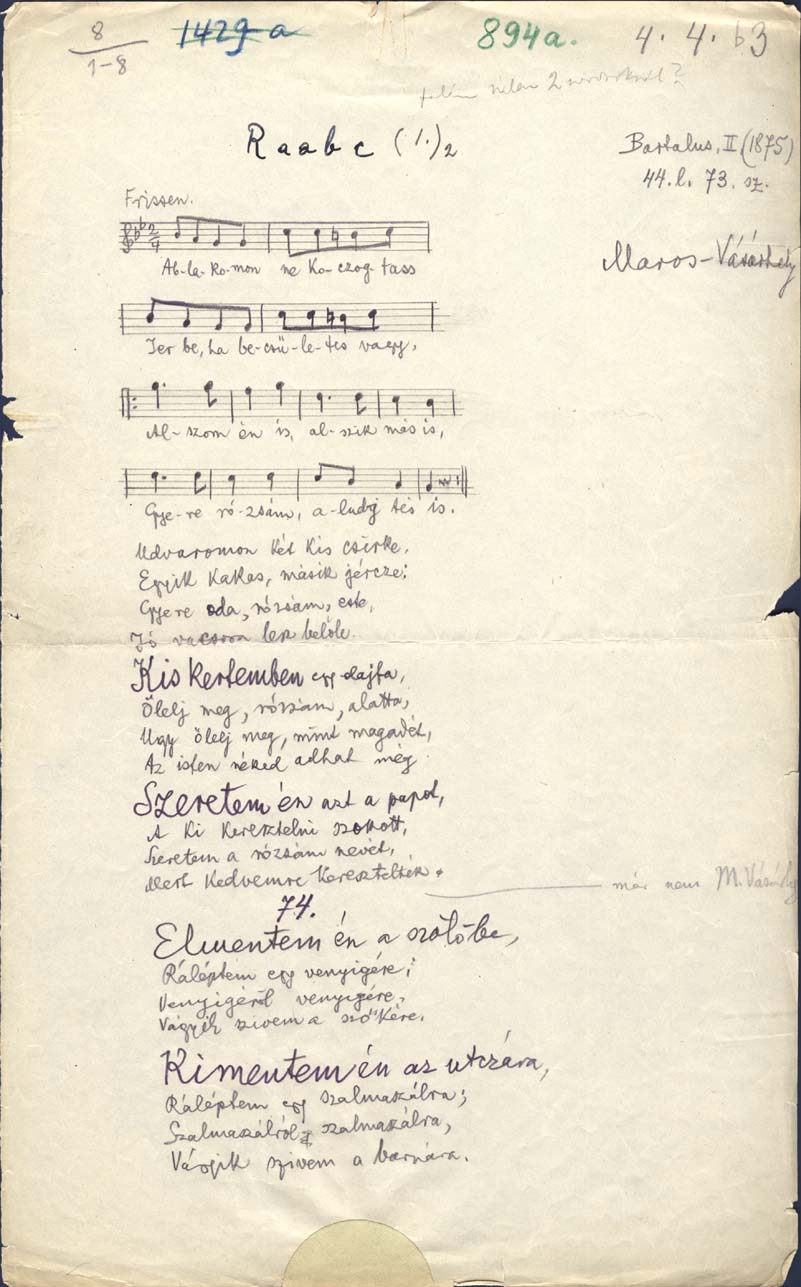 8
1-8
1429 a
894a.
4. 4. b3
talán 2
Raabc (1.)2
Bartalus, II (1875)
44. l. 73. sz.
Maros-Vásárhely
Frissen.
2/4
Ab-la-ko-mon ne ko-czog-tass
Jer be, ha be-csü-le-tes vagy,
Al-szom én is, al-szik más is,
Gye-re ró-zsám, a-ludj tés is.
Udvaromon két kis csirke,
Egyik kakas, másik jércze:
Gyere oda, rózsám, este,
Jó vacsora lesz belőle.
Kis kertemben egy olajfa,
Ölelj meg, rózsám, alatta,
Ugy ölelj meg, mint magadét,
Az isten néked adhat még.
Szeretem én azt a papot,
A ki keresztelni szokott,
Szeretem a rózsám nevét,
Mert kedvemre keresztelték.
már nem M. Vásárhely
74.
Elmentem én a szőlőbe,
Ráléptem egy venyigére;
Venyigéről venyigére,
Vágyik szivem a szőkére.
Kimentem én az utczára,
Ráléptem egy szalmaszálra;
Szalmaszálról szalmaszálra,
Vágyik szivem a barnára.